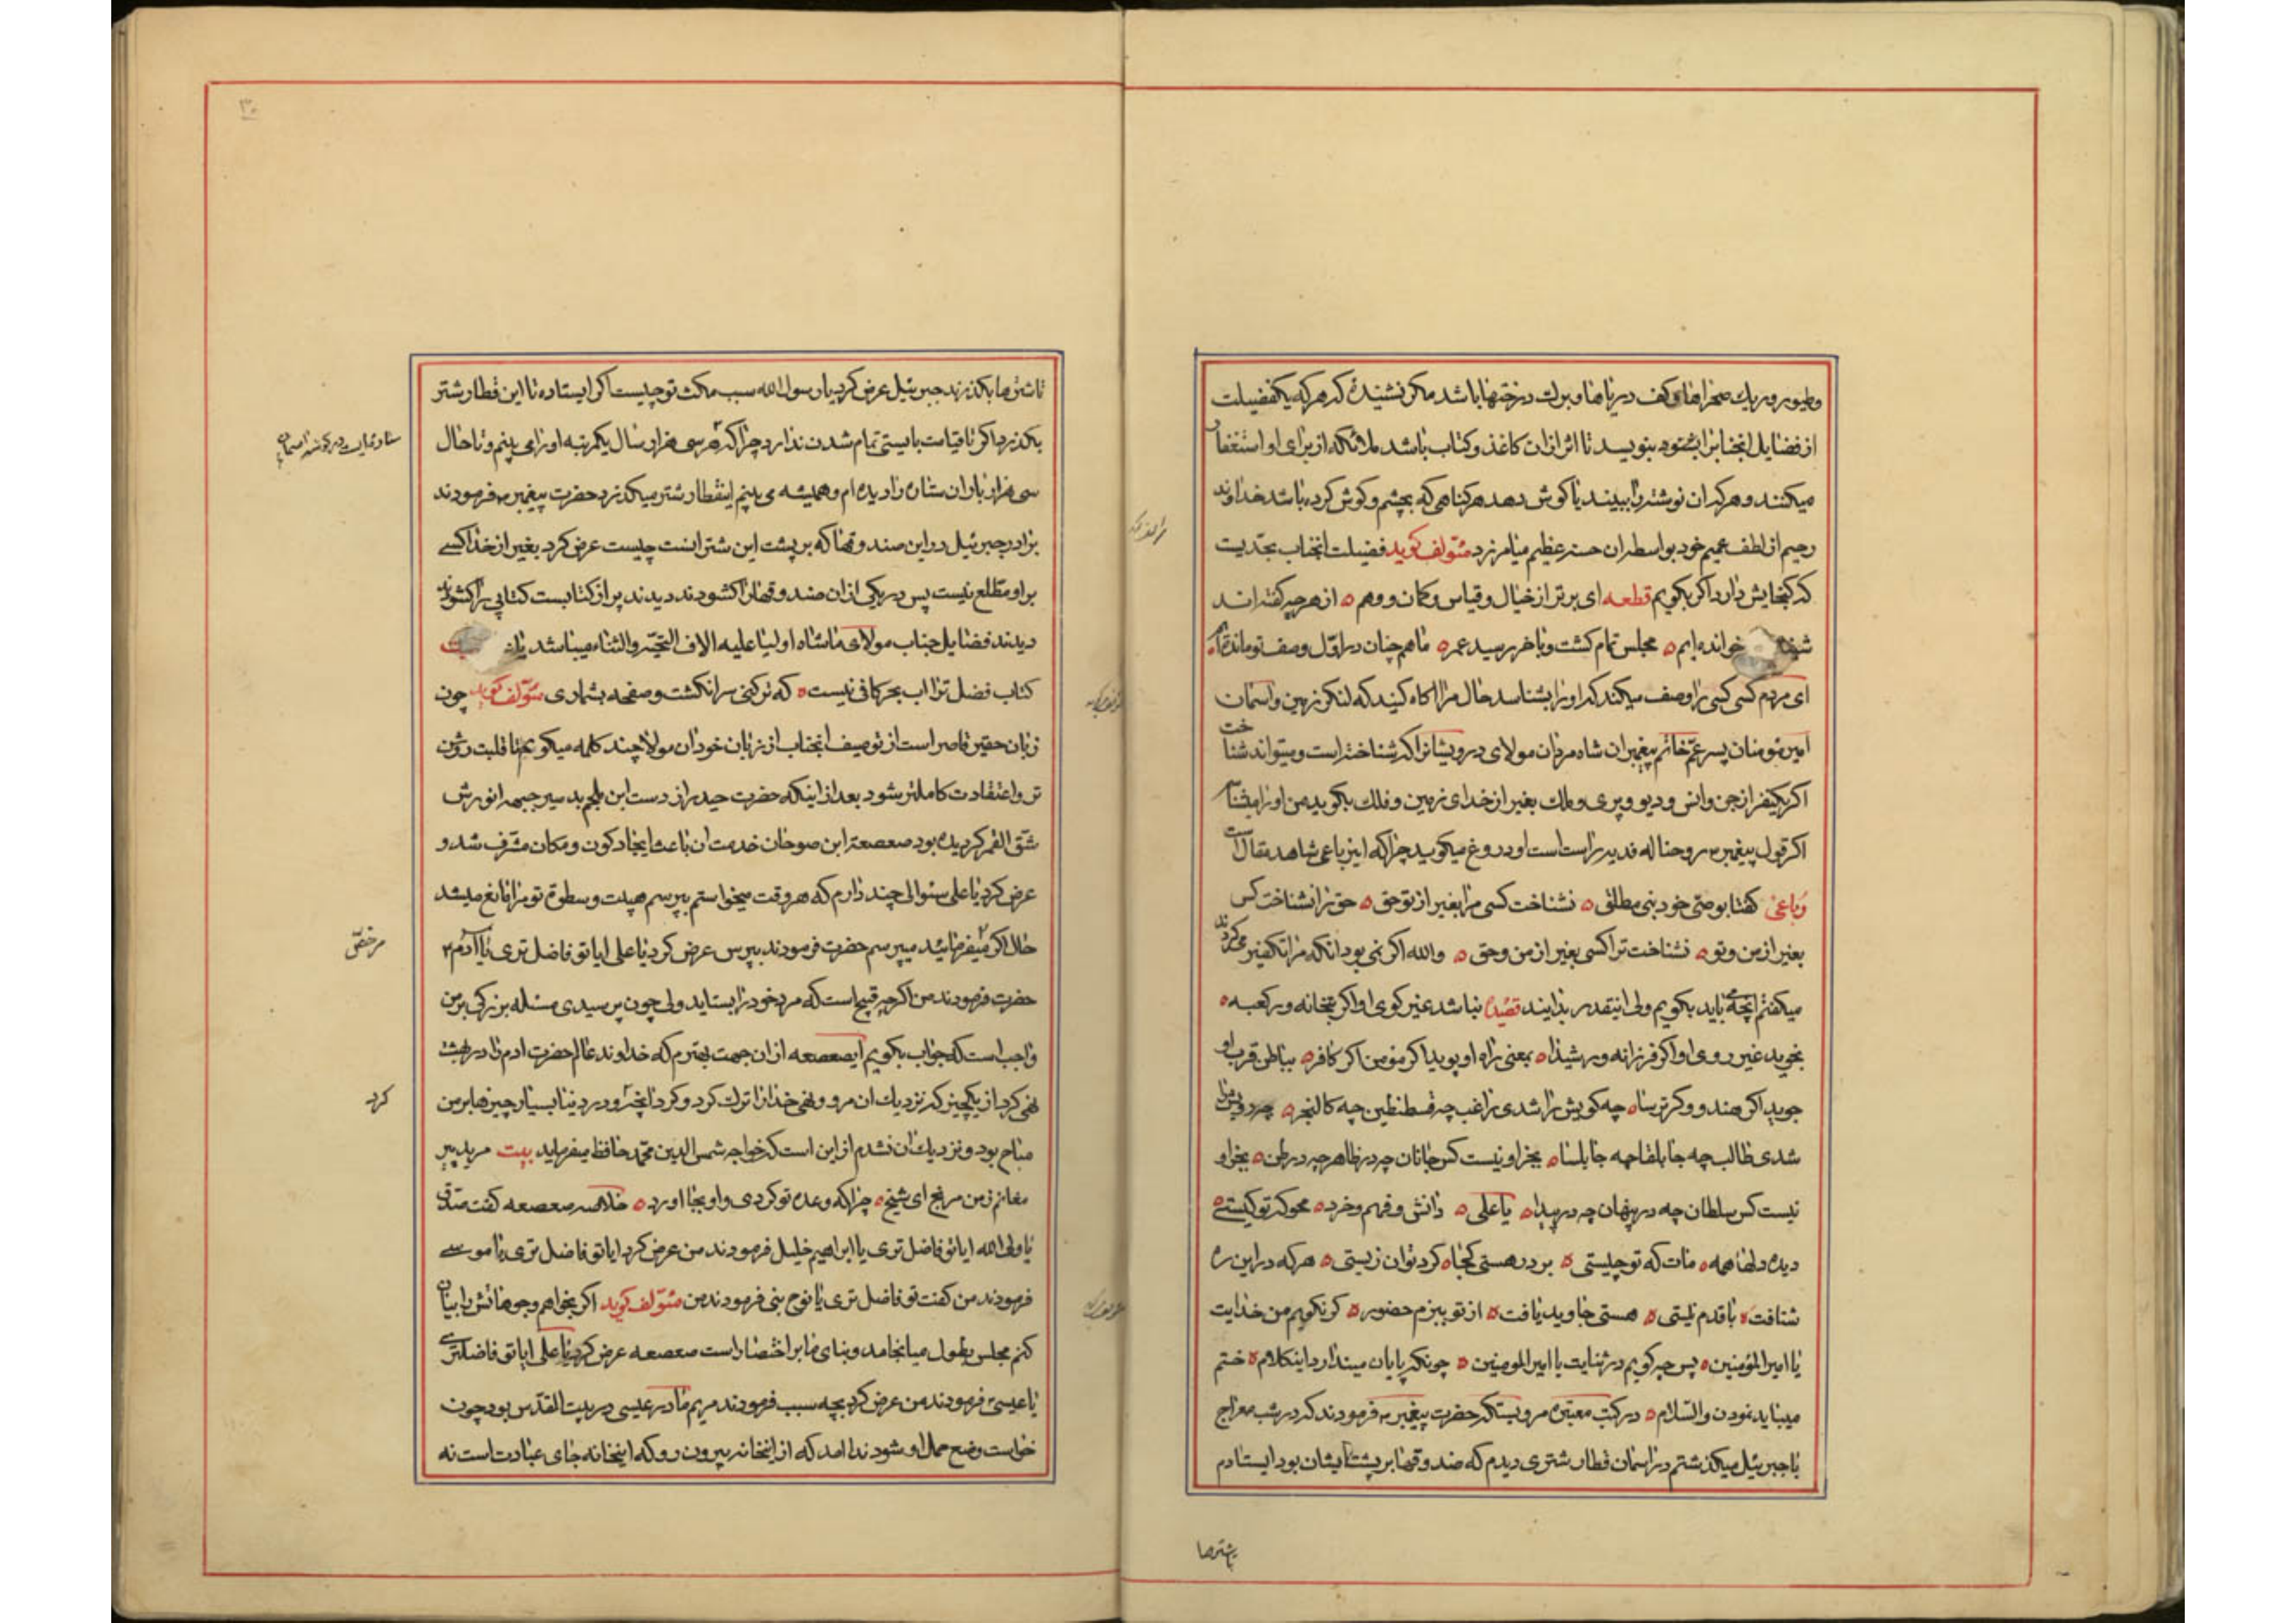 وطیور و ریك صحراها و کف دریاها و برك درختها باشد مکر نشنیدهٔ که هر که یکفضیلت
از فضایل انجنابرا بشنود بنویسد تا اثر ازان کاغذ و کتاب باشد ملائکه از برای او استغفار
میکنند و هر که ان نوشته را ببیند یا کوش دهد هر کناهی که بچشم و کوش کرده باشد خداوند
رحیم از لطف عمیم خود بواسطه ان میامرزد مؤلف کوید فضیلت انجناب بحدیست
که کنجایش دارد اکر بکویم قطعه ای برتر از خیال و قیاس و کمان و وهم ه از هر چه کفته اند
خوانده ایم ه مجلس تمام کشت و باخر رسید عمر ه ما همچنان در اوّل وصف تو مانده ایم ه
ای مردم کسی کسی را وصف میکند که او را بشناسد حال مرا اکاه کنید که لنکر زمین و اسمان
امیر مومنان پسر عمّ خاتم پیغمبران شاه مردان مولای درویشانرا که شناخته است و میتواند شناخت
اکر یکنفر از جن و انس و دیو و پری و ملك بغیر از خدای زمین و فلك بکوید من او را میشناسم
اکر قول پیغمبر روحنا له فدیه راست است او دروغ میکوید چرا که این رباعی شاهد مقال است
رباعی کفتا بوصی خود نبی مطلق ه نشناخت کسی مرا بغیر از تو حق ه حق را نشناخت کس
بغیر از من و تو ه نشناخت ترا کسی بغیر از من و حق ه والله اکر نمی بود انکه مرا تکفیر میکردند
میکفتم انچه باید بکویم ولی اینقدر بدانید قصیده نباشد غیر کوی او اکر بتخانه ور کعبه ه
بخوید غیر روی او اکر فرزانه ور شیدا ه بمعنی راه او پوید اکر مؤمن اکر کافر ه بباطن قرب او
جوید اکر هندو و کر ترسا ه چه کویش را شدی راغب چه قسطنطین چه کالنجر ه چه رویش را
شدی طالب چه جابلقا چه جابلسا ه بجز او نیست کس جانان چه در ظاهر چه در باطن ه بجز او
نیست کس سلطان چه در پنهان چه در پیدا ه یا علی ه دانش و فهم و خرد ه محو که تو کیستی ه
دیده دلها همه ه مات که تو چیستی ه بر در هستی کجا ه کرد توان زیستی ه هر که در این ره
شتافت ه با قدم نیستی ه هستی جاوید یافت ه از تو ببزم حضور ه کر نکویم من خدایت
یا امیر المؤمنین ه پس چه کویم در ثنایت یا امیر المومنین ه چونکه پایان میندارد اینکلام ه ختم
میباید نمودن والسّلام ه در کتب معتبره مرویست که حضرت پیغمبر فرمودند که در شب معراج
با جبرئیل میکذشتم در اسمان قطار شتری دیدم که صندوقها بر پشت ایشان بود ایستادم
تا شترها
تا شترها بکذرند جبرئیل عرض کرد یا رسول الله سبب مکث تو چیست اکر ایستاده تا این قطار شتر
بکذرد اکر تا قیامت بایستی تمام شدن ندارد چرا که هر سی هزار سال یکمرتبه او را می بینم و تا حال
سی هزار بار ان ستاره را دیده ام و همیشه می بینم اینقطار شتر میکذرد حضرت پیغمبر فرمودند
برادر جبرئیل در این صندوقها که بر پشت این شتر است چیست عرض کرد بغیر از خدا کسی
بر او مطّلع نیست پس در یکی از ان صندوقها را کشودند دیدند پر از کتابست کتابی را کشودند
دیدند فضایل جناب مولای ما شاه اولیا علیه الاف التحیّه والثناء میباشد
کتاب فضل ترا اب بحر کافی نیست ه که تر کنی سر انکشت و صفحه بشماری مؤلف کوید چون
زبان حقیر قاصر است از توصیف انجناب از زبان خود ان مولا چند کلمه میکویم تا قلبت روشن
تر و اعتقادت کاملتر بشود بعد از اینکه حضرت حیدر از دست ابن ملجم پدسیر جبهه انورش
شقّ القمر کردیده بود صعصعة ابن صوحان خدمت ان باعث ایجاد کون و مکان مشرّف شد و
عرض کرد یا علی سئوالی چند دارم که هر وقت میخواستم بپرسم هیبت و سطوة تو مرا مانع میشد
حال اکر میفرمائید میپرسم حضرت فرمودند بپرس عرض کرد یا علی ایا تو فاضل تری یا ادم
حضرت فرمودند من اکر چه قبیح است که مرد خود را بستاید ولی چون پرسیدی مسئله بزرکی بر من
واجب است که جواب بکویم ای صعصعه از ان جهت بهترم که خداوند عالم حضرت ادم را در بهشت
نهی کرد از یکچیز که نزدیك ان مرو و نهی خدا را ترك کرد و کرد انچه و در دنیا بسیار چیزها بر من
مباح بود و نزدیك ان نشدم از این است که خواجه شمس الدین محمّد حافظ میفرماید بیت مرید پیر
مغانم ز من مرنج ای شیخ ه چرا که وعده تو کردی و او بجا اورد ه خلاصه صعصعه کفت صدّقت
یا ولی الله ایا تو فاضل تری یا ابراهیم خلیل فرمودند من عرض کرد ایا تو فاضل تری یا موسی
فرمودند من کفت تو فاضل تری یا نوح نبی فرمودند من مئولف کوید اکر بخواهم وجوهاتش را بیان
کنم مجلس بطول میانجامد و بنای ما بر اختصار است صعصعه عرض کرد یا علی ایا تو فاضلتری
یا عیسی فرمودند من عرض کرد بچه سبب فرمودند مریم مادر عیسی در بیت المقدّس بود چون
خواست وضع حمل او شود ندا امد که از اینخانه بیرون رو که اینخانه جای عبادت است نه
مرخصّ
کرد